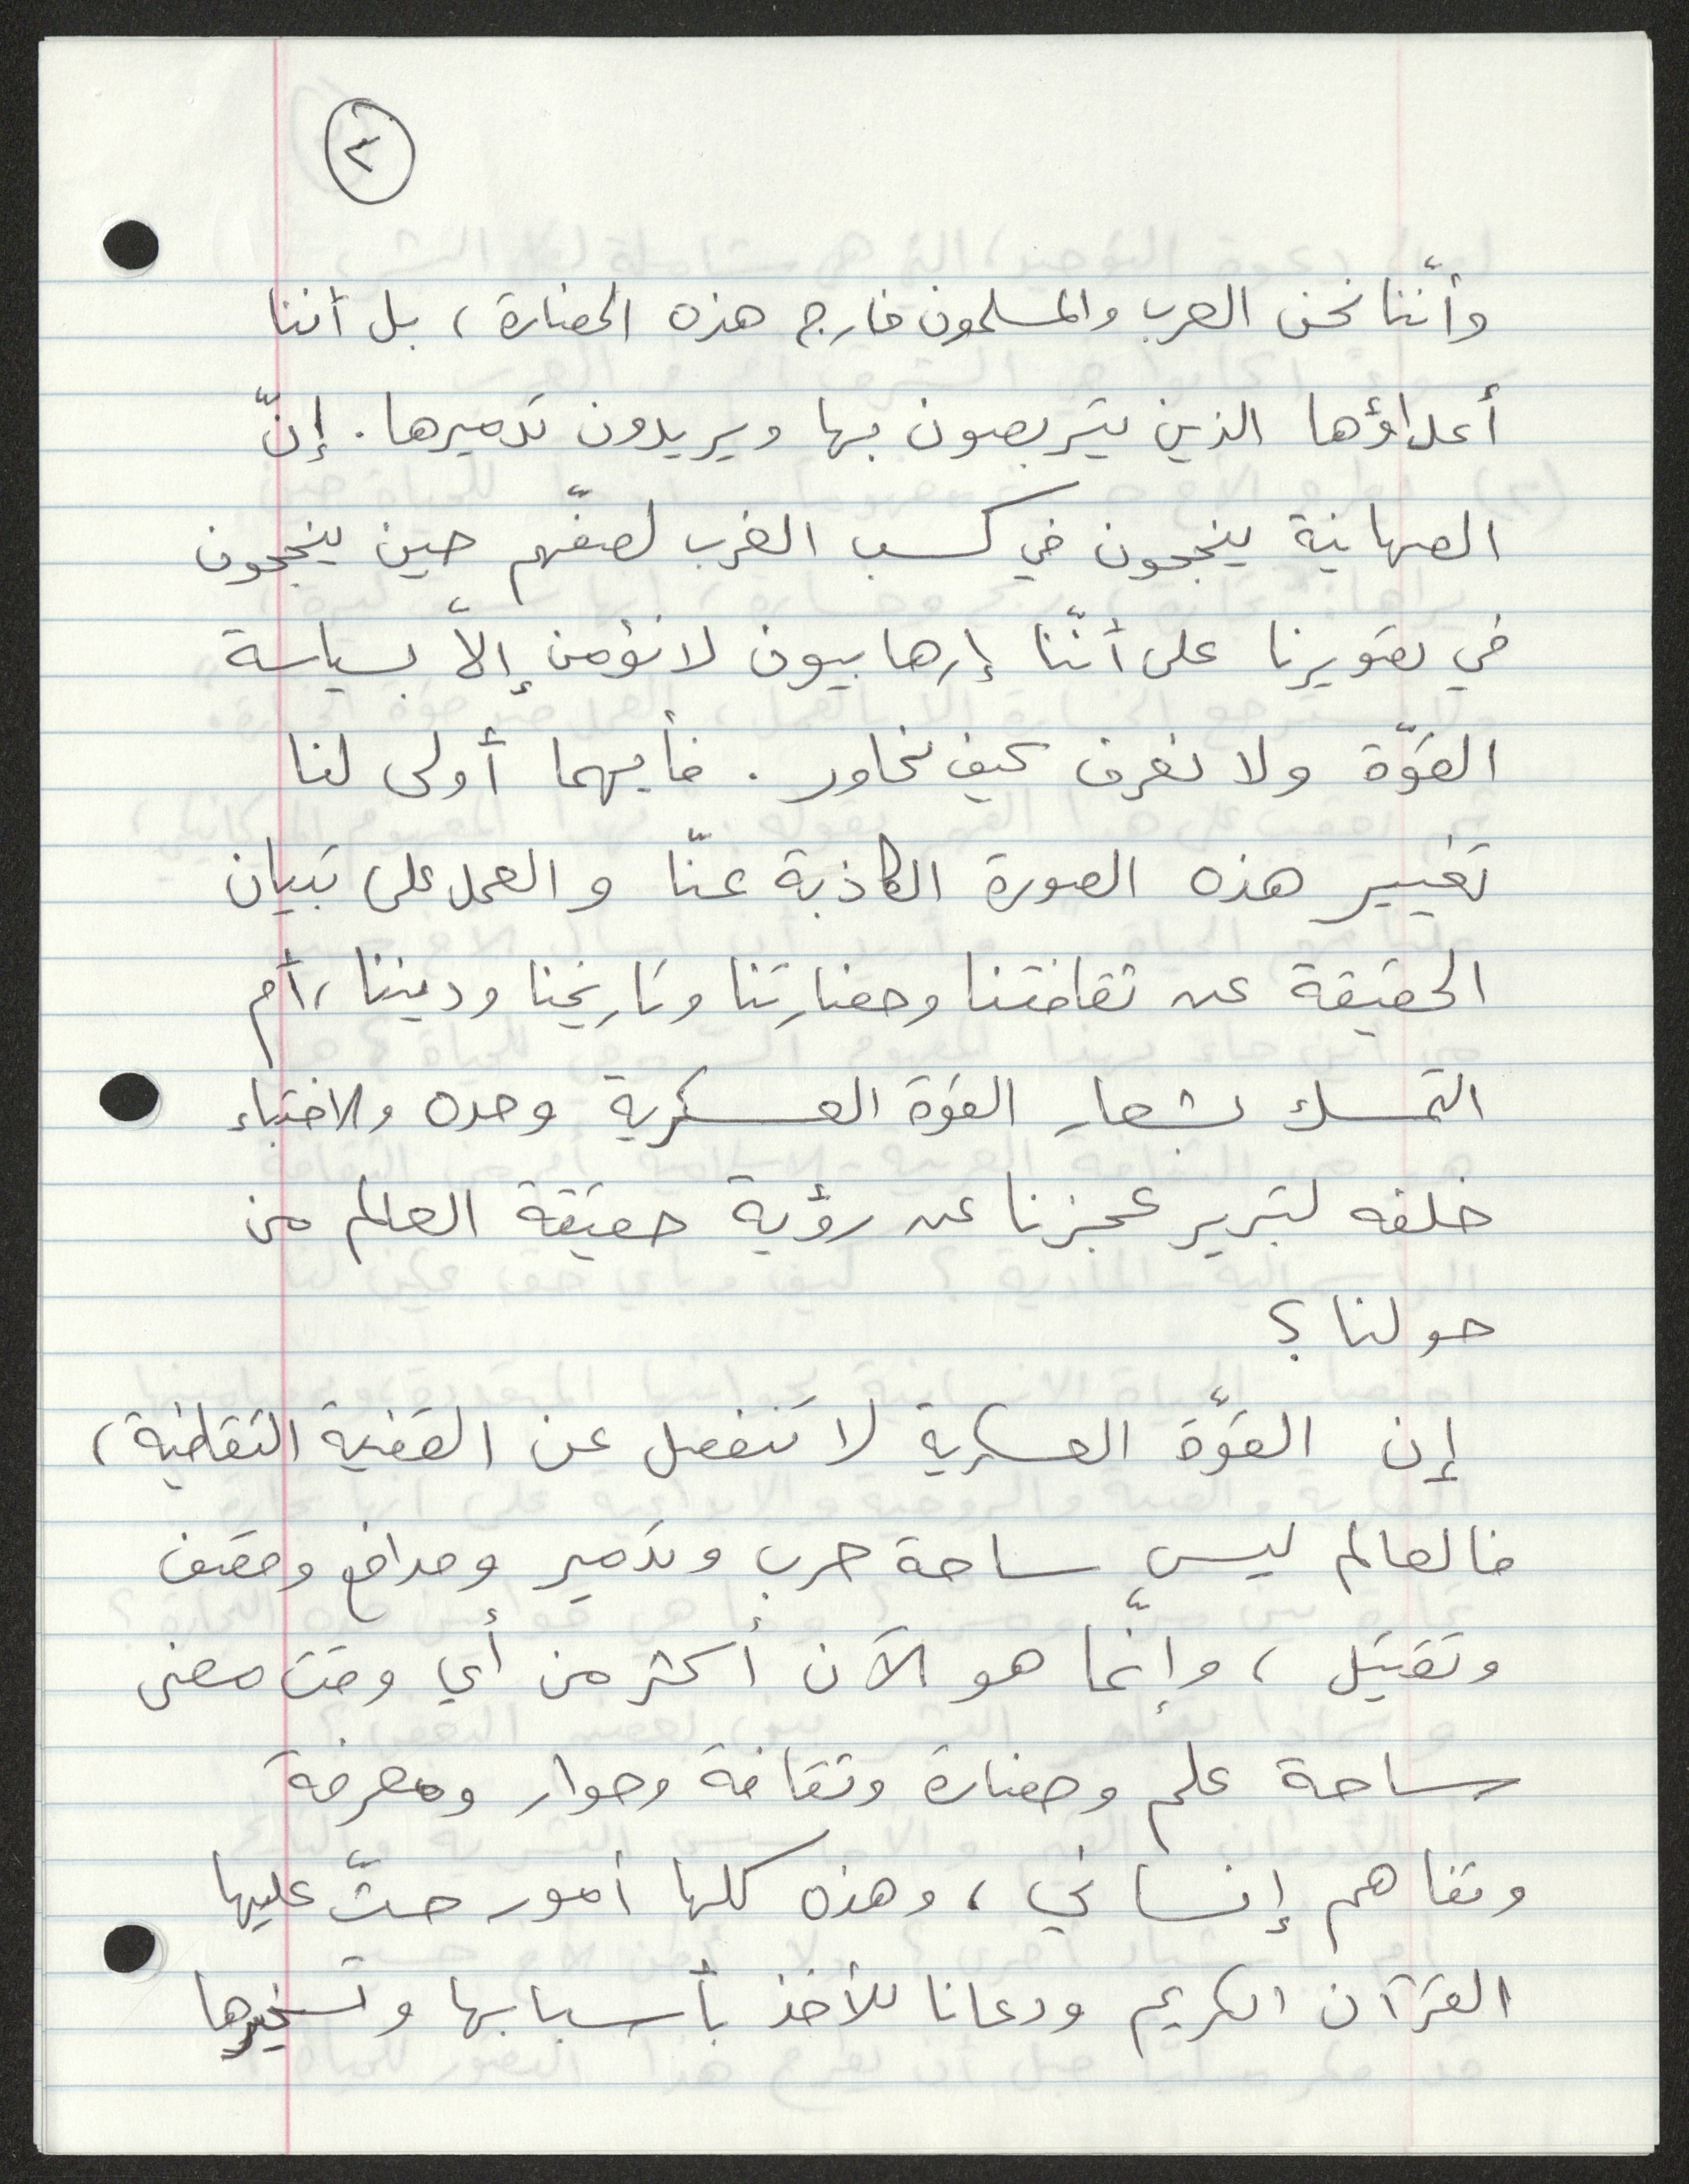 ٣
وأنّنا نحن العرب والمسلمون خارج هذه الحضارة، بل أننا
أعداؤها الذين يتربصون بها ويريدون تدميرها. إنّ
الصهاينة ينجحون في كسب الغرب لصفّهم حين ينجحون
في تصويرنا على أنّنا إرهابيون لا نؤمن إلاّ بسياسة
القوّة ولا نعرف كيف نحاور. فأيهما أولى لنا
تغيير هذه الصورة الكاذبة عنّا والعمل على تبيان
الحقيقة عن ثقافتنا وحضارتنا وتاريخنا وديننا، أم
التمسك بشعار القوة العسكرية وحده والاختباء
خلفه لتبرير عجزنا عن رؤية حقيقة العالم من
حولنا؟
إن القوّة العسكرية لا تنفصل عن القضية الثقافية،
فالعالم ليس ساحة حرب وتدمير ومدافع وقصف
وتقتيل، وإنّما هو الآن أكثر من أي وقت مضى
ساحة علم وحضارة وثقافة وحوار ومعرفة
وتفاهم إنساني، وهذه كلها أمور حثّ عليها
القرآن الكريم ودعانا للأخذ بأسبابها وتسخيرها